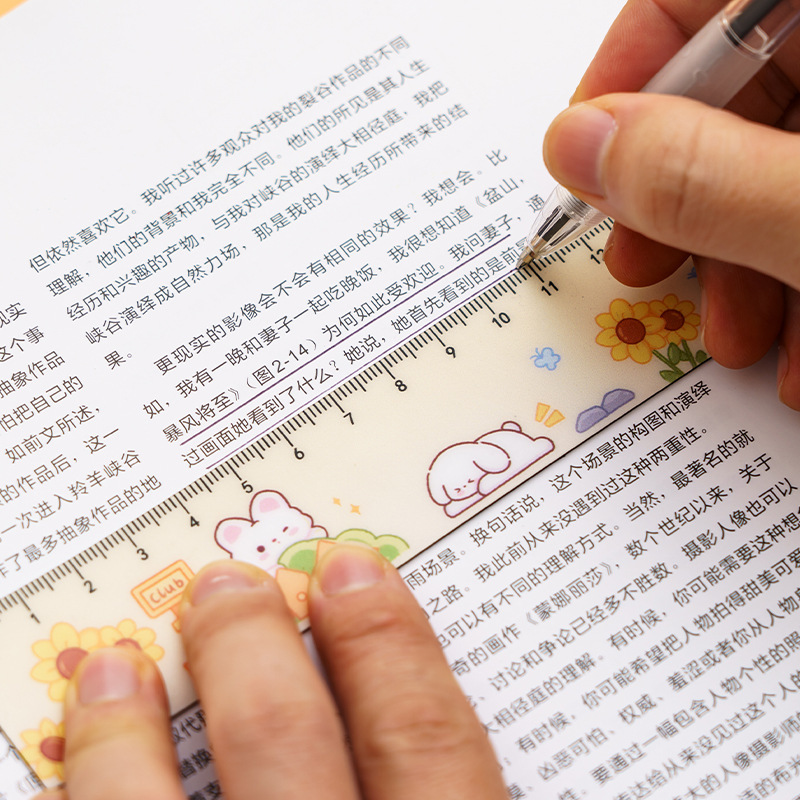 但依然喜欢它。我听过许多观众对我的裂谷作品的不同
理解，他们的背景和我完全不同。他们的所见是其人生
经历和兴趣的产物，与我对峡谷的演绎大相径庭，我把
峡谷演绎成自然力场，那是我的人生经历所带来的结
果。
更现实的影像会不会有相同的效果？我想会。比
如，我有一晚和妻子一起吃晚饭，我很想知道《盆山，
暴风将至》（图2-14）为何如此受欢迎。我问妻子，通
过画面她看到了什么？她说，她首先看到的是前
现实
这个事
抽象作品
怕把自己的
如前文所述，
的作品后，这一
一次进入羚羊峡谷
作了最多抽象作品的地
1 2 3 4 5 6 7 8 9 10 11 12
Club
雨场景。换句话说，这个场景的构图和演绎
之路。我此前从来没遇到过这种两重性。
也可以有不同的理解方式。当然，最著名的就
奇的画作《蒙娜丽莎》，数个世纪以来，关于
、讨论和争论已经多不胜数。摄影人像也可以
大相径庭的理解。有时候，你可能需要这种想
，有时候，你可能希望把人物拍得甜美可爱
、凶恶可怕、权威、羞涩或者你从人物
性，要通过一幅包含人物个性的照
表达给从来没见过这个人的
大的人像摄影师
的布光